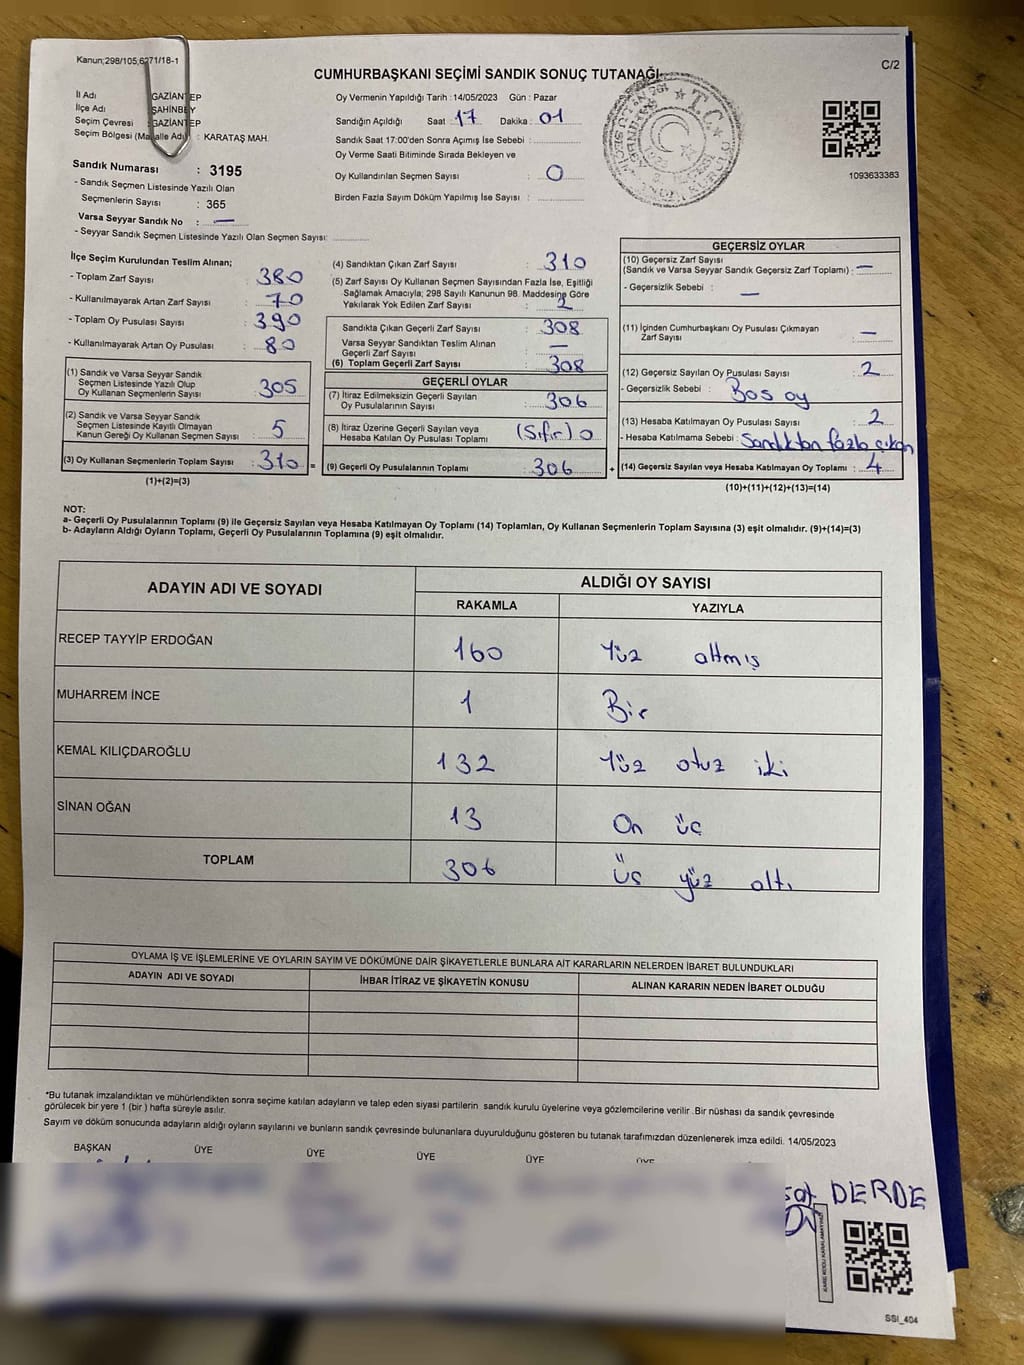 Kanun;298/105,6271/18-1
C/2
CUMHURBAŞKANI SEÇİMİ SANDIK SONUÇ TUTANAĞI
İl Adı : GAZİANTEP
İlçe Adı : ŞAHİNBEY
Seçim Çevresi : GAZİANTEP
Seçim Bölgesi (Mahalle Adı) : KARATAŞ MAH.
Sandık Numarası : 3195
- Sandık Seçmen Listesinde Yazılı Olan
Seçmenlerin Sayısı : 365
Varsa Seyyar Sandık No : —
- Seyyar Sandık Seçmen Listesinde Yazılı Olan Seçmen Sayısı:
Oy Vermenin Yapıldığı Tarih : 14/05/2023 Gün : Pazar
Sandığın Açıldığı Saat : 17 Dakika : 01
Sandık Saat 17:00'den Sonra Açımış İse Sebebi :
Oy Verme Saati Bitiminde Sırada Bekleyen ve
Oy Kullandırılan Seçmen Sayısı : 0
Birden Fazla Sayım Döküm Yapılmış İse Sayısı :
T.C.
1093633383
İlçe Seçim Kurulundan Teslim Alınan;
- Toplam Zarf Sayısı : 380
- Kullanılmayarak Artan Zarf Sayısı : 70
- Toplam Oy Pusulası Sayısı : 390
- Kullanılmayarak Artan Oy Pusulası : 80
(1) Sandık ve Varsa Seyyar Sandık
Seçmen Listesinde Yazılı Olup
Oy Kullanan Seçmenlerin Sayısı : 305
(2) Sandık ve Varsa Seyyar Sandık
Seçmen Listesinde Kayıtlı Olmayan
Kanun Gereği Oy Kullanan Seçmen Sayısı : 5
(3) Oy Kullanan Seçmenlerin Toplam Sayısı : 310 =
(1)+(2)=(3)
(4) Sandıktan Çıkan Zarf Sayısı : 310
(5) Zarf Sayısı Oy Kullanan Seçmen Sayısından Fazla İse, Eşitliği
Sağlamak Amacıyla; 298 Sayılı Kanunun 98. Maddesine Göre
Yakılarak Yok Edilen Zarf Sayısı : 2
Sandıkta Çıkan Geçerli Zarf Sayısı : 308
Varsa Seyyar Sandıktan Teslim Alınan
Geçerli Zarf Sayısı : —
(6) Toplam Geçerli Zarf Sayısı : 308
GEÇERLİ OYLAR
(7) İtiraz Edilmeksizin Geçerli Sayılan
Oy Pusulalarının Sayısı : 306
(8) İtiraz Üzerine Geçerli Sayılan veya
Hesaba Katılan Oy Pusulası Toplamı : (Sıfır) 0
(9) Geçerli Oy Pusulalarının Toplamı : 306 +
GEÇERSİZ OYLAR
(10) Geçersiz Zarf Sayısı
(Sandık ve Varsa Seyyar Sandık Geçersiz Zarf Toplamı) : —
- Geçersizlik Sebebi : —
(11) İçinden Cumhurbaşkanı Oy Pusulası Çıkmayan
Zarf Sayısı : —
(12) Geçersiz Sayılan Oy Pusulası Sayısı : 2
- Geçersizlik Sebebi : Bos oy
(13) Hesaba Katılmayan Oy Pusulası Sayısı : 2
- Hesaba Katılmama Sebebi : Sandıktan fazla çıkan
(14) Geçersiz Sayılan veya Hesaba Katılmayan Oy Toplamı : 4
(10)+(11)+(12)+(13)=(14)
NOT:
a- Geçerli Oy Pusulalarının Toplamı (9) ile Geçersiz Sayılan veya Hesaba Katılmayan Oy Toplamı (14) Toplamları, Oy Kullanan Seçmenlerin Toplam Sayısına (3) eşit olmalıdır. (9)+(14)=(3)
b- Adayların Aldığı Oyların Toplamı, Geçerli Oy Pusulalarının Toplamına (9) eşit olmalıdır.
ADAYIN ADI VE SOYADI
ALDIĞI OY SAYISI
RAKAMLA YAZIYLA
RECEP TAYYİP ERDOĞAN 160 Yüz altmış
MUHARREM İNCE 1 Bir
KEMAL KILIÇDAROĞLU 132 Yüz otuz iki
SİNAN OĞAN 13 On üç
TOPLAM 306 üç yüz altı
OYLAMA İŞ VE İŞLEMLERİNE VE OYLARIN SAYIM VE DÖKÜMÜNE DAİR ŞİKAYETLERLE BUNLARA AİT KARARLARIN NELERDEN İBARET BULUNDUKLARI
ADAYIN ADI VE SOYADI İHBAR İTİRAZ VE ŞİKAYETİN KONUSU ALINAN KARARIN NEDEN İBARET OLDUĞU
*Bu tutanak imzalandıktan ve mühürlendikten sonra seçime katılan adayların ve talep eden siyasi partilerin sandık kurulu üyelerine veya gözlemcilerine verilir .Bir nüshası da sandık çevresinde
görülecek bir yere 1 (bir ) hafta süreyle asılır.
Sayım ve döküm sonucunda adayların aldığı oyların sayılarını ve bunların sandık çevresinde bulunanlara duyurulduğunu gösteren bu tutanak tarafımızdan düzenlenerek imza edildi. 14/05/2023
BAŞKAN ÜYE ÜYE ÜYE ÜYE ÜYE
DERDE
KARE KODU KARALAMAYINIZ!
SSI_404